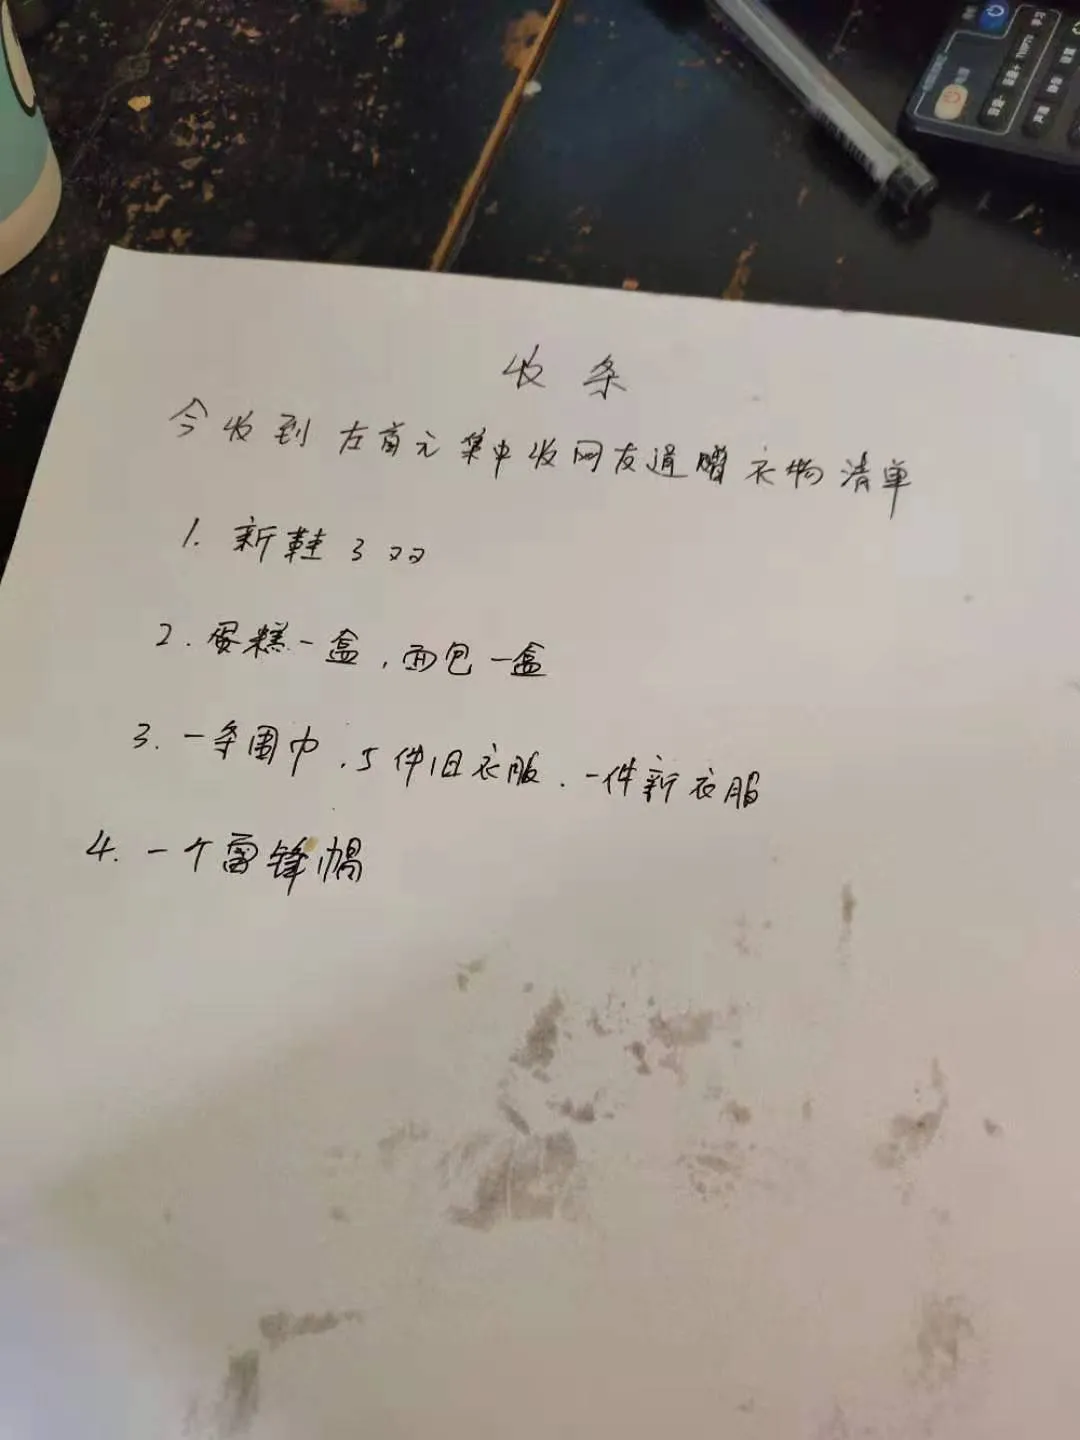 收条
今收到左首元集中收网友通赠衣物清单
1. 新鞋3双
2. 蛋糕一盒,面包一盒
3. 一条围巾.5件旧衣服.一件新衣服
4. 一个雷锋帽